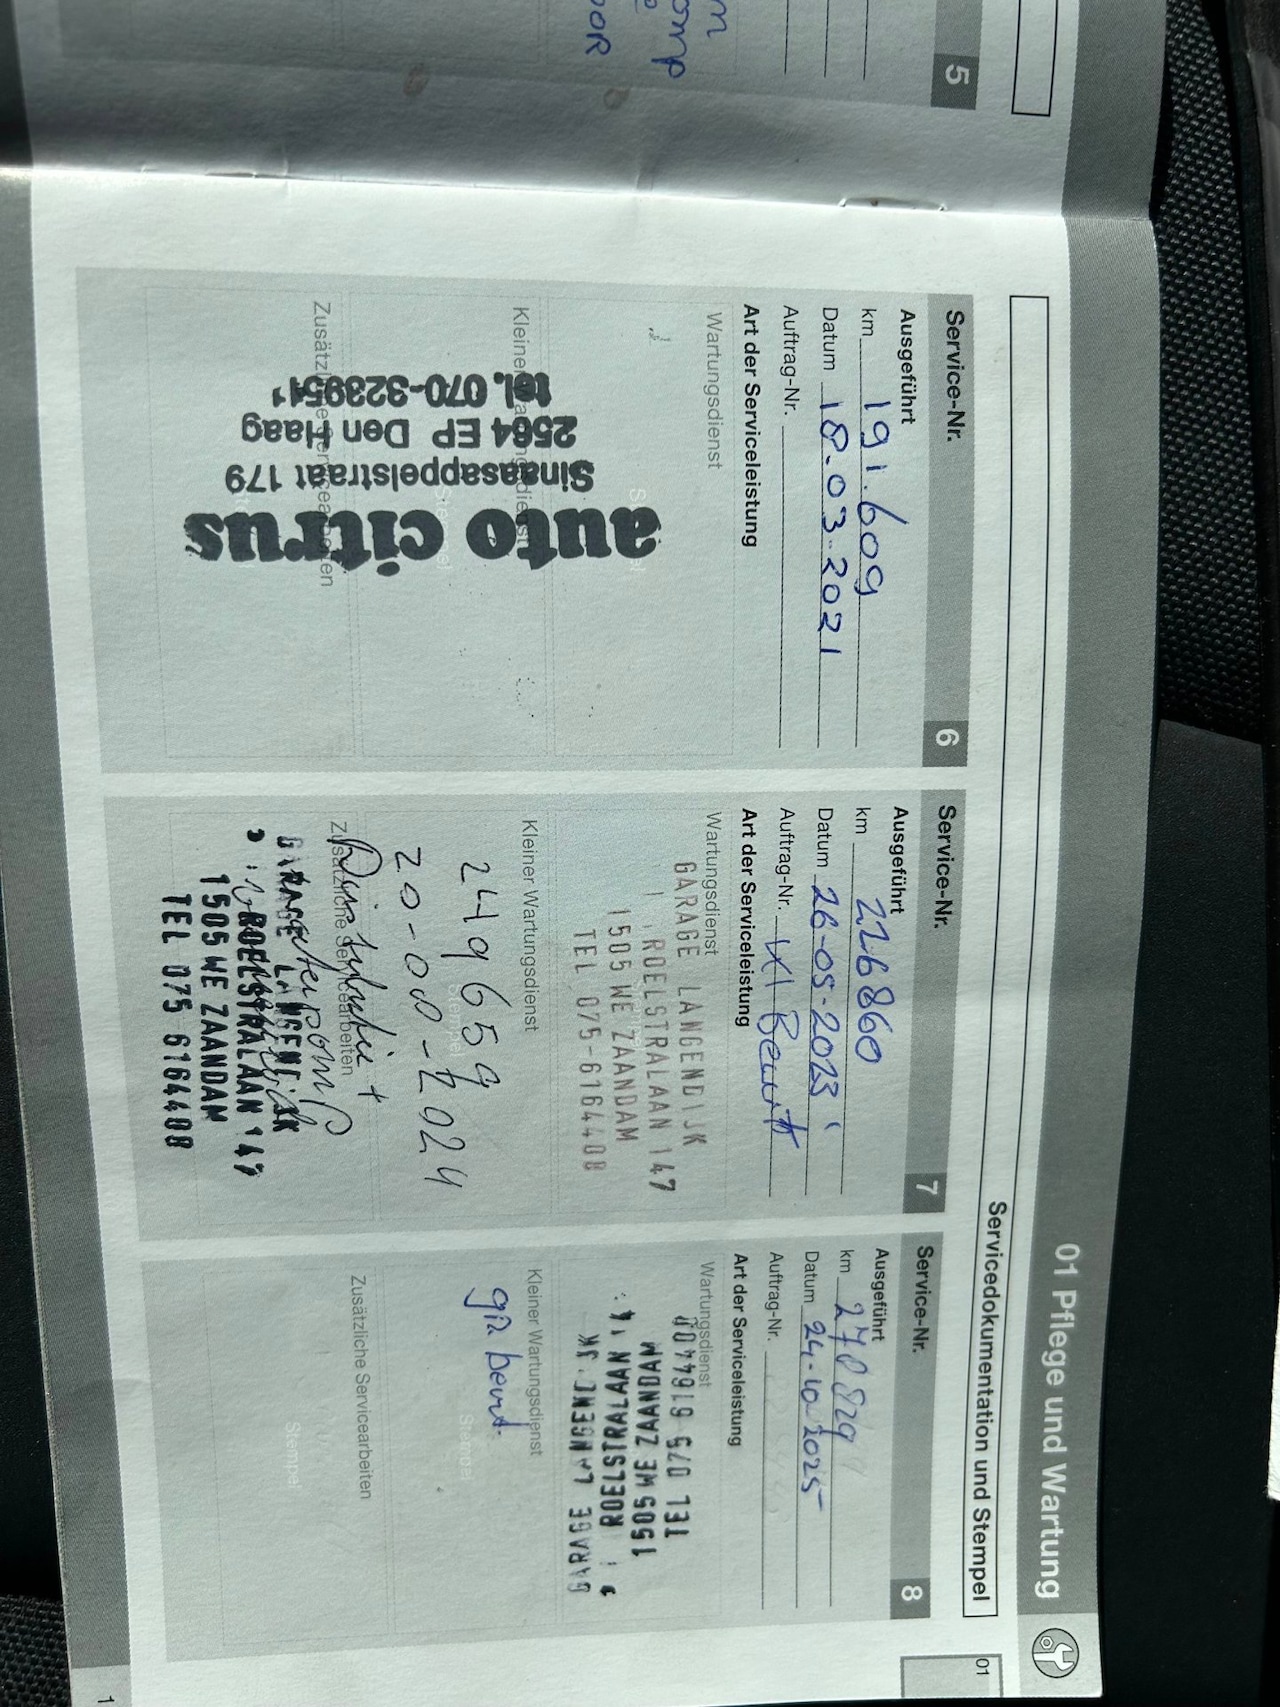 5
01 Pflege und Wartung
Servicedokumentation und Stempel
01
Service-Nr. 6
Ausgeführt
km 191.609
Datum 18.03.2021
Auftrag-Nr.
Art der Serviceleistung
Wartungsdienst
Kleiner Wartungsdienst
Zusätzliche Servicearbeiten
auto citrus
Sinaasappelstraat 179
2564 EP Den Haag
tel. 070-3239511
Service-Nr. 7
Ausgeführt
km 226860
Datum 26-05-2023
Auftrag-Nr. Kl Beurt
Art der Serviceleistung
Wartungsdienst
GARAGE LANGENDIJK
ROELSTRALAAN 147
1505 WE ZAANDAM
TEL 075-6164408
Kleiner Wartungsdienst
249659
20-08-2024
Zusätzliche Servicearbeiten
Distributie +
waterpomp
GARAGE LANGENDIJK
ROELSTRALAAN 147
1505 WE ZAANDAM
TEL 075 6164408
Service-Nr. 8
Ausgeführt
km 270829
Datum 24-10-2025
Auftrag-Nr.
Art der Serviceleistung
Wartungsdienst
GARAGE LANGENDIJK
ROELSTRALAAN
1505 WE ZAANDAM
TEL 075 6164408
Kleiner Wartungsdienst
gr. beurt.
Stempel
Zusätzliche Servicearbeiten
Stempel
1